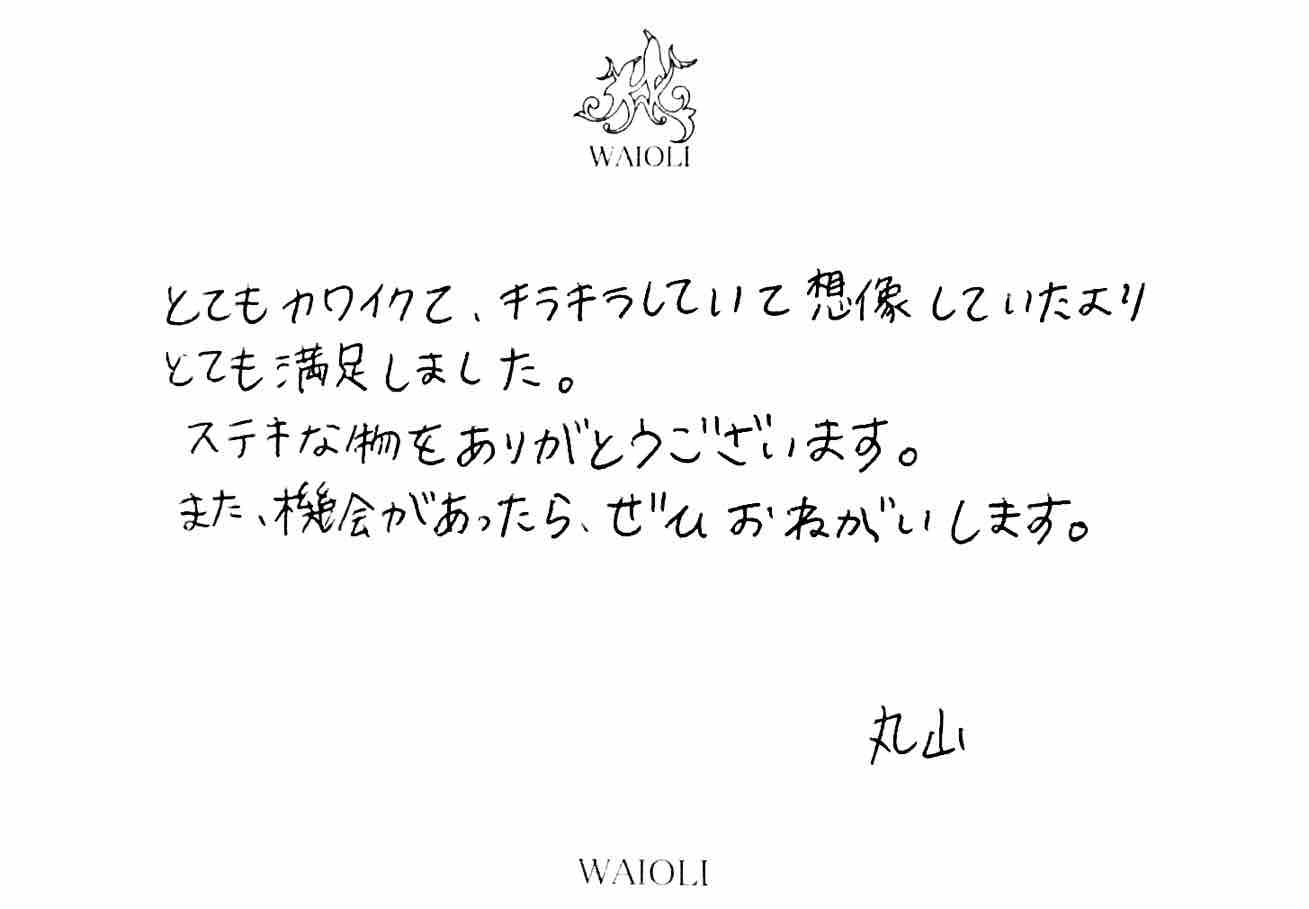 WAIOLI
とてもカワイクて、キラキラしていて想像していたより
とても満足しました。
ステキな物をありがとうございます。
また、機会があったら、ぜひおねがいします。
丸山
WAIOLI